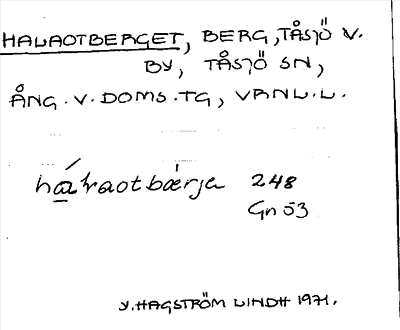 HALAOTBERGET, BERG, TÅSJÖ V.
BY, TÅSJÖ SN,
ÅNG. V. DOMS. TG, VRNL. L.
248
Gn 53
Y. HAGSTRÖM LINDH 1971.